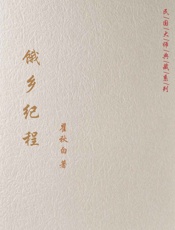 民国大师典藏系列
饿乡纪程
瞿秋白 著